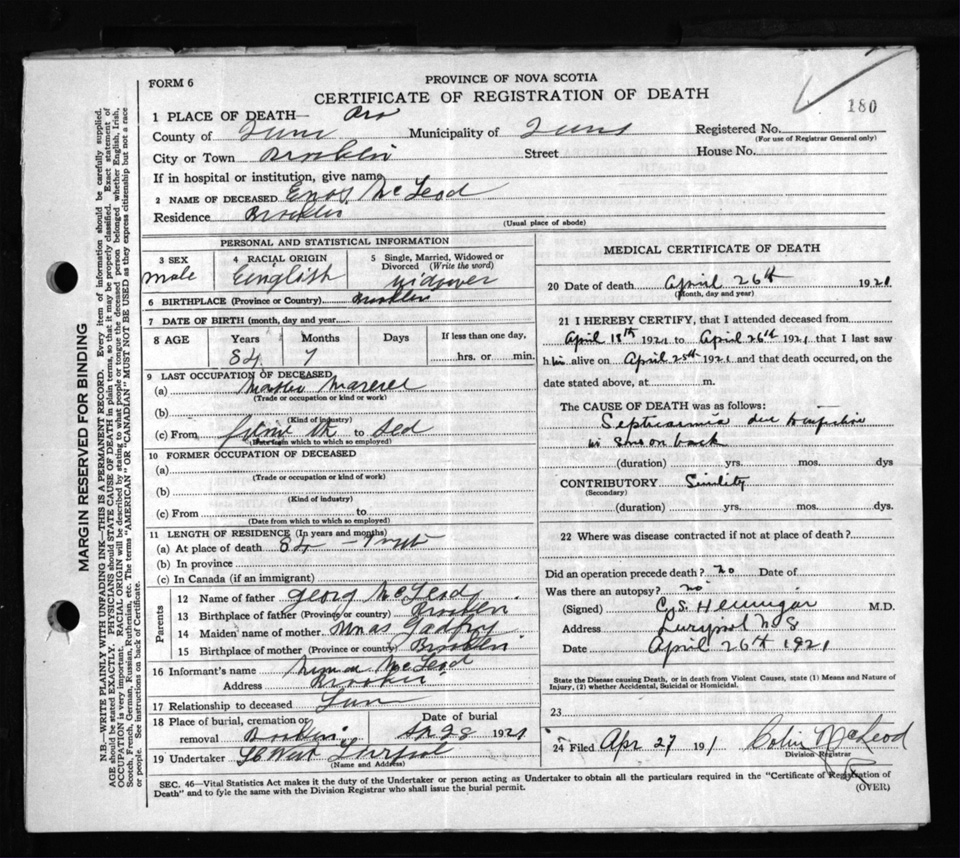 180
FORM 6
PROVINCE OF NOVA SCOTIA
CERTIFICATE OF REGISTRATION OF DEATH
1 PLACE OF DEATH—
County of Municipality of Registered No.
(For use of Registrar General only)
City or Town Brooklin Street House No.
If in hospital or institution, give name
2 NAME OF DECEASED Enos McLeod
Residence Brooklin
(Usual place of abode)
PERSONAL AND STATISTICAL INFORMATION
3 SEX
male
4 RACIAL ORIGIN
English
5 Single, Married, Widowed or Divorced (Write the word)
widower
6 BIRTHPLACE (Province or Country) Brooklin
7 DATE OF BIRTH (month, day and year)
8 AGE Years Months Days If less than one day,
84 7 hrs. or min.
9 LAST OCCUPATION OF DECEASED
(a) Master
(Trade or occupation or kind or work)
(b)
(Kind of industry)
(c) From to
(Date from which to which so employed)
10 FORMER OCCUPATION OF DECEASED
(a)
(Trade or occupation or kind of work)
(b)
(Kind of industry)
(c) From to
(Date from which to which so employed)
11 LENGTH OF RESIDENCE (In years and months)
(a) At place of death 84
(b) In province
(c) In Canada (if an immigrant)
Parents
12 Name of father Georg McLeod
13 Birthplace of father (Province or country) Brooklin
14 Maiden name of mother Godfrey
15 Birthplace of mother (Province or country) Brooklin
16 Informant's name McLeod
Address Brooklin
17 Relationship to deceased Son
18 Place of burial, cremation or removal Brooklin
Date of burial
28 1921
19 Undertaker West
(Name and Address)
MEDICAL CERTIFICATE OF DEATH
20 Date of death April 26th 1921
(Month, day and year)
21 I HEREBY CERTIFY, that I attended deceased from
April 18th 1921 to April 26th 1921 that I last saw
him alive on April 25th 1921 and that death occurred, on the
date stated above, at m.
The CAUSE OF DEATH was as follows:
Septicaemia due to infection
on back
(duration) yrs. mos. dys
CONTRIBUTORY Senility
(Secondary)
(duration) yrs. mos. dys.
22 Where was disease contracted if not at place of death?
Did an operation precede death? no Date of
Was there an autopsy? no
(Signed) Hennigar M.D.
Address N S
Date April 26th 1921
State the Disease causing Death, or in death from Violent Causes, state (1) Means and Nature of
Injury, (2) whether Accidental, Suicidal or Homicidal.
23
24 Filed Apr 27 191 Colin McLeod
Division Registrar
SEC. 46—Vital Statistics Act makes it the duty of the Undertaker or person acting as Undertaker to obtain all the particulars required in the "Certificate of Registration of
Death" and to fyle the same with the Division Registrar who shall issue the burial permit.
(OVER)
MARGIN RESERVED FOR BINDING
N.B.—WRITE PLAINLY WITH UNFADING INK—THIS IS A PERMANENT RECORD. Every item of information should be carefully supplied.
AGE should be stated EXACTLY. PHYSICIANS should STATE CAUSE OF DEATH in plain terms, so that it may be properly classified. Exact statement of
OCCUPATION is very important. RACIAL ORIGIN will be described by stating to what people or tongue the deceased person belonged whether English, Irish,
Scotch, French, German, Russian, Ruthenian, etc. The terms "AMERICAN" OR "CANADIAN" MUST NOT BE USED as they express citizenship but not a race
or people. See instructions on back of Certificate.